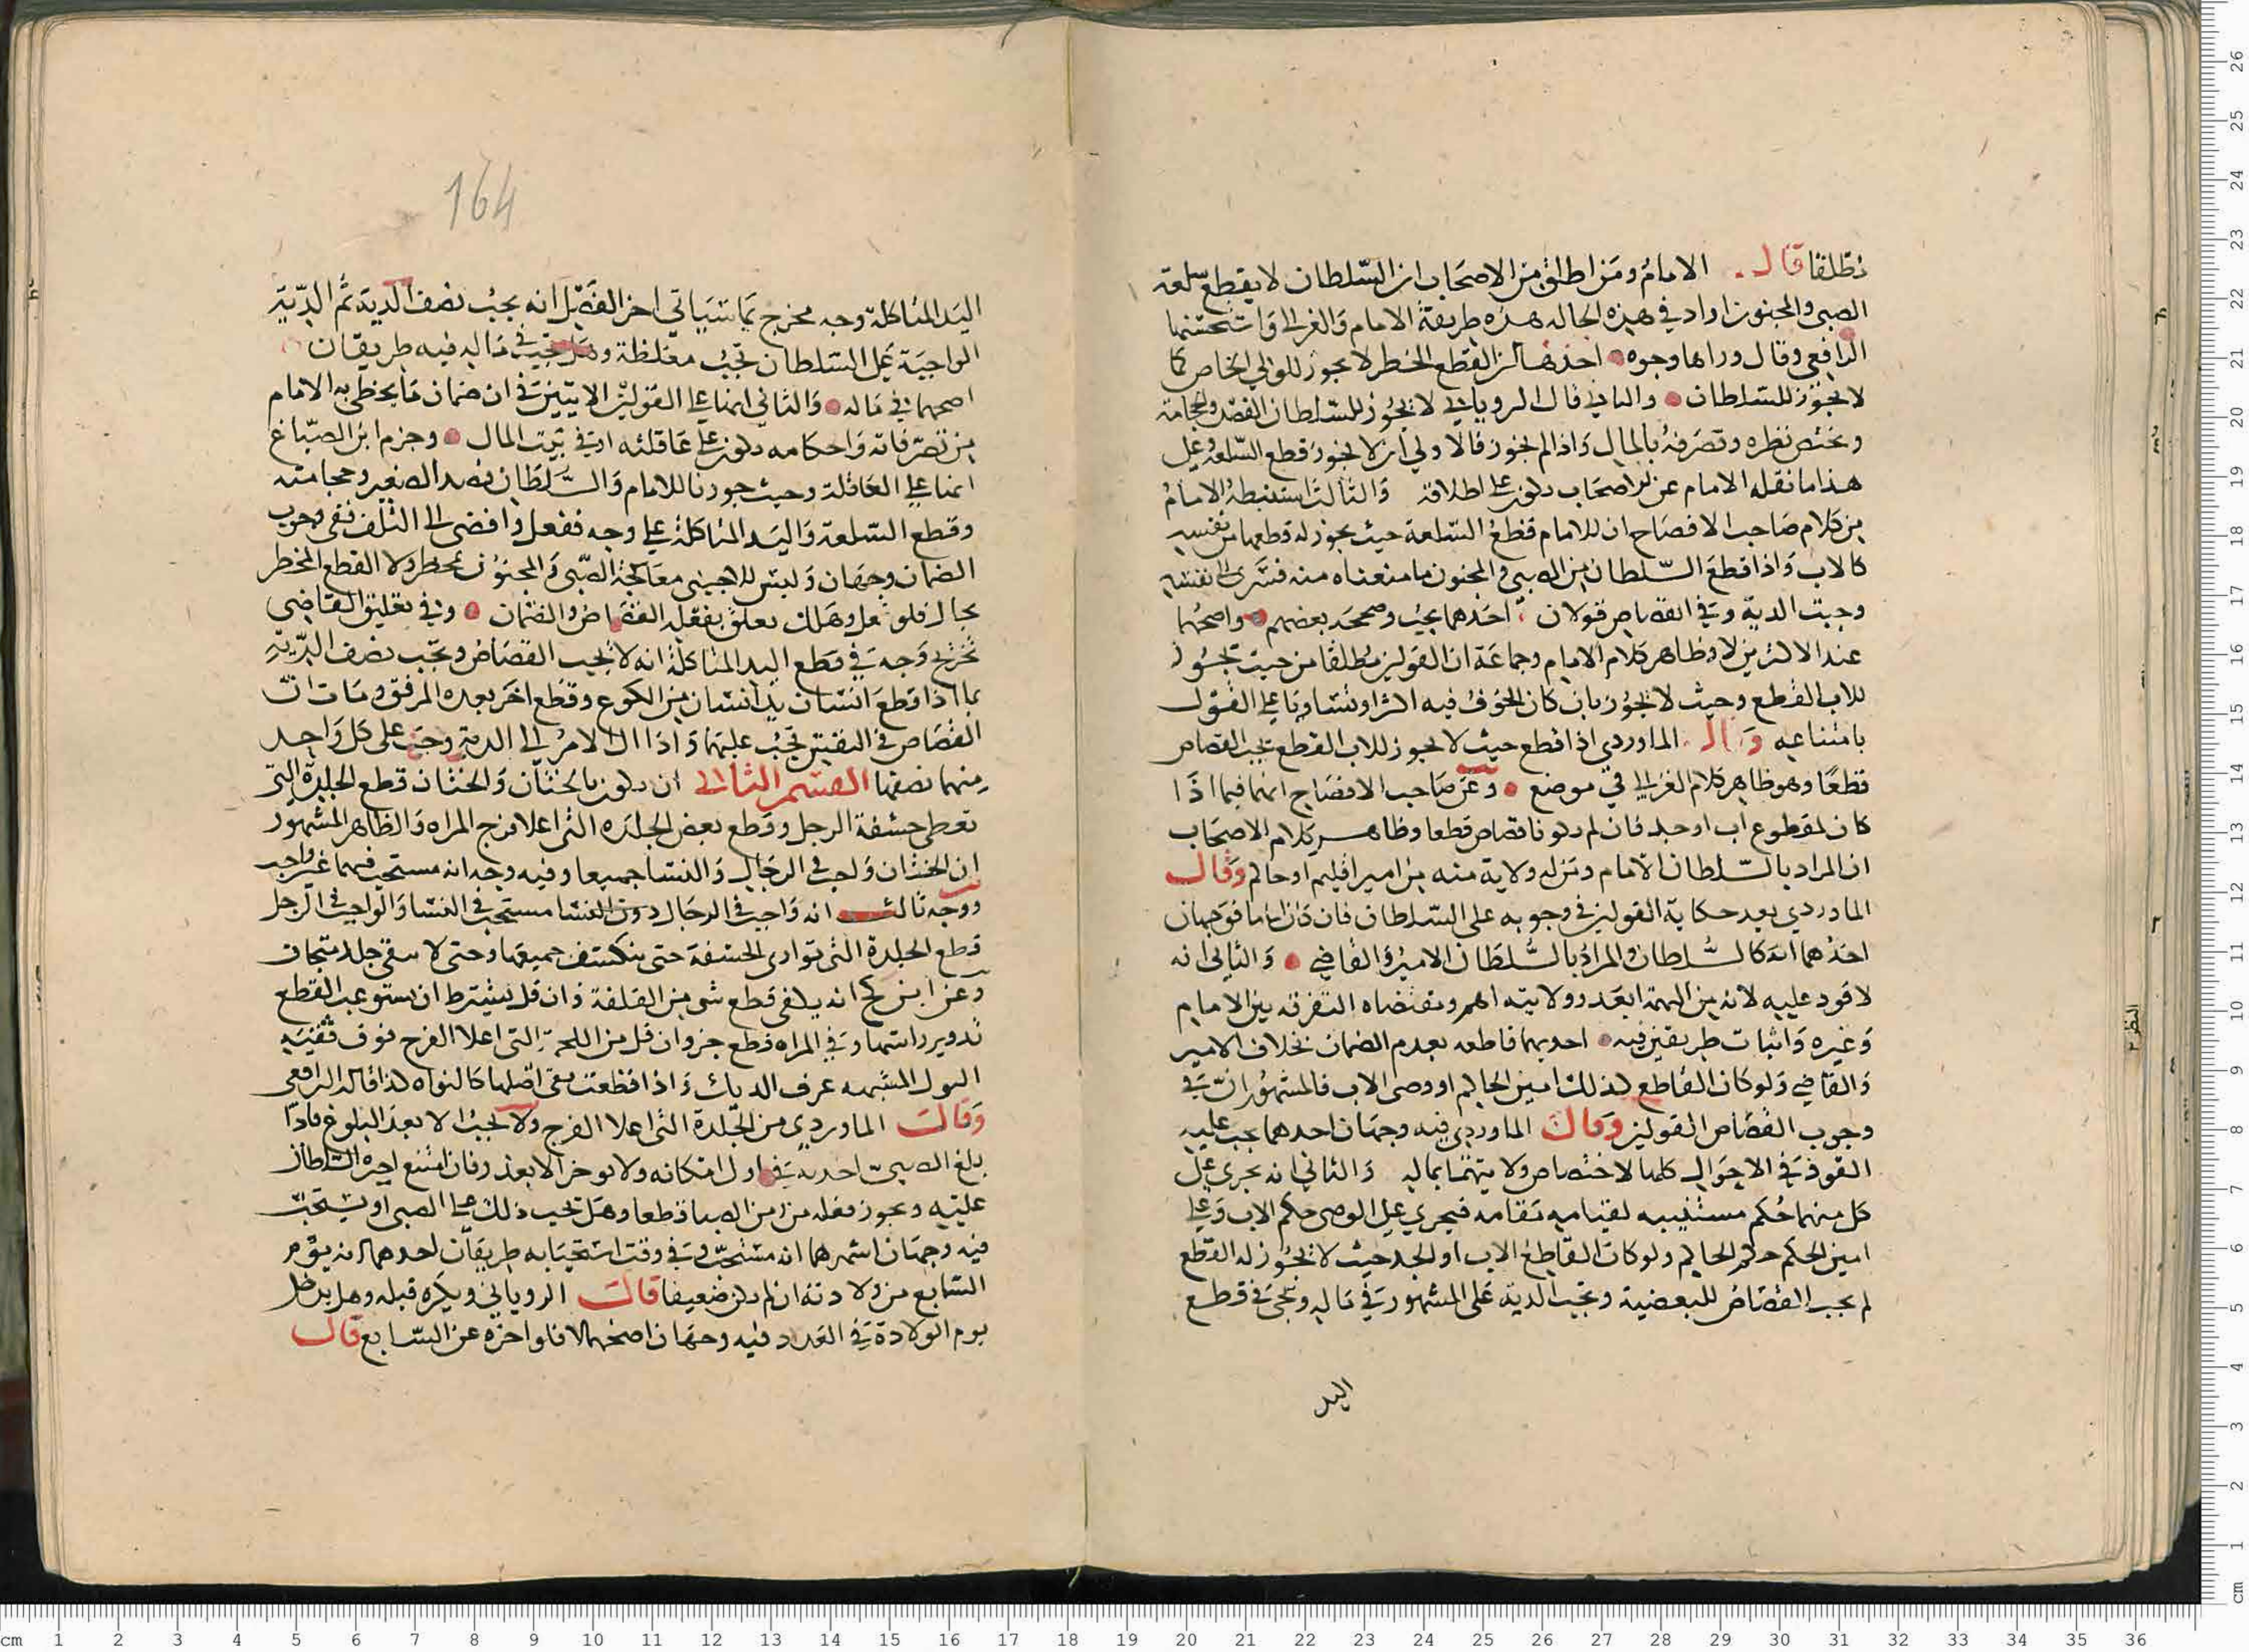 مطلقا قال الامام ومن اطلق من الاصحاب ان السلطان لا يقطع سلعة
الصبي والمجنون اراد في هذه الحاله هذه طريقة الامام والغزالي واستحسنها
الرافعي وقال وراها وجوه احدها ان القطع الخطر لا يجوز للولي الخاص كما
لا يجوز للسلطان والثاني قال الروياني لا يجوز للسلطان الفصد والحجامة
ويختص نظره وتصرفه بالمال واذا لم يجوز فالاولي ان لا يجوز قطع السلعة وعلى
هذا ما نقله الامام عن الاصحاب يكون على اطلاقه والثالث استنبطه الامام
من كلام صاحب الافصاح ان للامام قطع السلعة حيث يجوز له قطعها من نفسه
كالاب واذا قطع السلطان من الصبي والمجنون ما منعناه منه فسرى الى نفسه
وجبت الدية وفي القصاص قولان احدهما يجب وصححه بعضهم واصحهما
عند الاكثرين لا وظاهر كلام الامام وجماعة ان القولين مطلقا من حيث يجوز
للاب القطع وحيث لا يجوز بان كان الخوف فيه اكثر او تساويا على القول
بامتناعه وقال الماوردي اذا قطع حيث لا يجوز للاب القطع يجب القصاص
قطعا وهو ظاهر كلام الغزالي في موضع وعن صاحب الافصاح انهما فيما اذا
كان لمقطوع اب او جد فان لم يكونا قصاص قطعا وظاهر كلام الاصحاب
ان المراد بالسلطان الامام ومن له ولاية منه من امير اقليم او حاكم وقال
الماوردي بعد حكاية القولين في وجوبه على السلطان فان كان اماما فوجهان
احدهما انه كالسلطان والمراد بالسلطان الامير والقاضي والثاني انه
لا قود عليه لانه من التهمة ابعد وولايته اهم ومقتضاه التفرقة بين الامام
وغيره واثبات طريقين فيه احديهما قاطعه بعدم الضمان بخلاف الامير
والقاضي ولو كان القاطع لذلك امين الحاكم او وصى الاب فالمشهور ان في
وجوب القصاص القولين وقال الماوردي فيه وجهان احدهما يجب عليه
القود في الاحوال كلها لاختصاص ولايتهما بماليه والثاني انه يجري على
كل منهما حكم مستنيبه لقيامه مقامه فيجري على الوصى حكم الاب وعلى
امين الحكم حكم الحاكم ولو كان القاطع الاب او الجد حيث لا يجوز له القطع
لم يجب القصاص للبعضية وتجب الدية على المشهور في ماله ويجى في قطع
اليد
164
اليد المتاكلة وجه مخرج مما سياتي اخر الفصل انه يجب نصف الدية ثم الدية
الواجبة على السلطان تجب مغلظة وهل تجب في ماله فيه طريقان
اصحهما في ماله والثاني انها على القولين الاتيين في ان ضمان ما يخطى به الامام
من تصرفاته واحكامه يكون على عاقلته او في بيت المال وجزم ابن الصباغ
انها على العاقلة وحيث جوزنا للامام والسلطان فصد الصغير وحجامته
وقطع السلعة واليد المتاكلة على وجه ففعل وافضى الى التلف ففي وجوب
الضمان وجهان وليس للاجنبي معالجة الصبي والمجنون بمخطر ولا القطع المخطر
بحال فلو فعل وهلك تعلق بفعله القصاص والضمان وفي تعليق القاضي
تخريج وجه في قطع اليد المتاكلة انه لا يجب القصاص وتجب نصف الدية
بما اذا قطع انسان يد انسان من الكوع وقطع اخر بعده المرفق ومات ان
القصاص في النفس يجب عليهما واذا ال الامر الى الدية وجب على كل واحد
منهما نصفها القسم الثاني ان يكون بالختان والختان قطع الجلدة التي
تغطى حشفة الرجل وقطع بعض الجلدة التي اعلا فرج المراه والظاهر المشهور
ان الختان واجب في الرجال والنسا جميعا وفيه وجه انه مستحب فيهما غير واجب
ووجه ثالث انه واجب في الرجال دون النسا مستحب في النسا والواجب في الرجل
قطع الجلدة التي توارى الحشفة حتى ينكشف جميعها وحتى لا يبقى جلد متجاف
وعن ابن كج انه يكفي قطع شي من القلفة وان قل بشرط ان يستوعب القطع
تدوير راسها وفي المراه قطع جزو ان قل من اللحمة التي اعلا الفرج فوق ثقبه
البول المشبهه عرف الديك واذا قطعت بقى اصلها كالنواه كذا قاله الرافعي
وقال الماوردي من الجلدة التي اعلا الفرج ولا يجب الا بعد البلوغ فاذا
بلغ الصبي اخذ به في اول امكانه ولا يوخر الا بعذر وان امتنع اجبره السلطان
عليه ويجوز فعله من زمن الصبا قطعا وهل يجب ذلك على الصبي او يستحب
فيه وجهان اشهرهما انه مستحب وفي وقت استحبابه طريقان احدهما انه يوم
السابع من ولادته ان لم يكن ضعيفا قال الروياني ويكره قبله وهل يدخل
يوم الولادة في العدد فيه وجهان اصحهما لا فلو اخره عن السابع قال